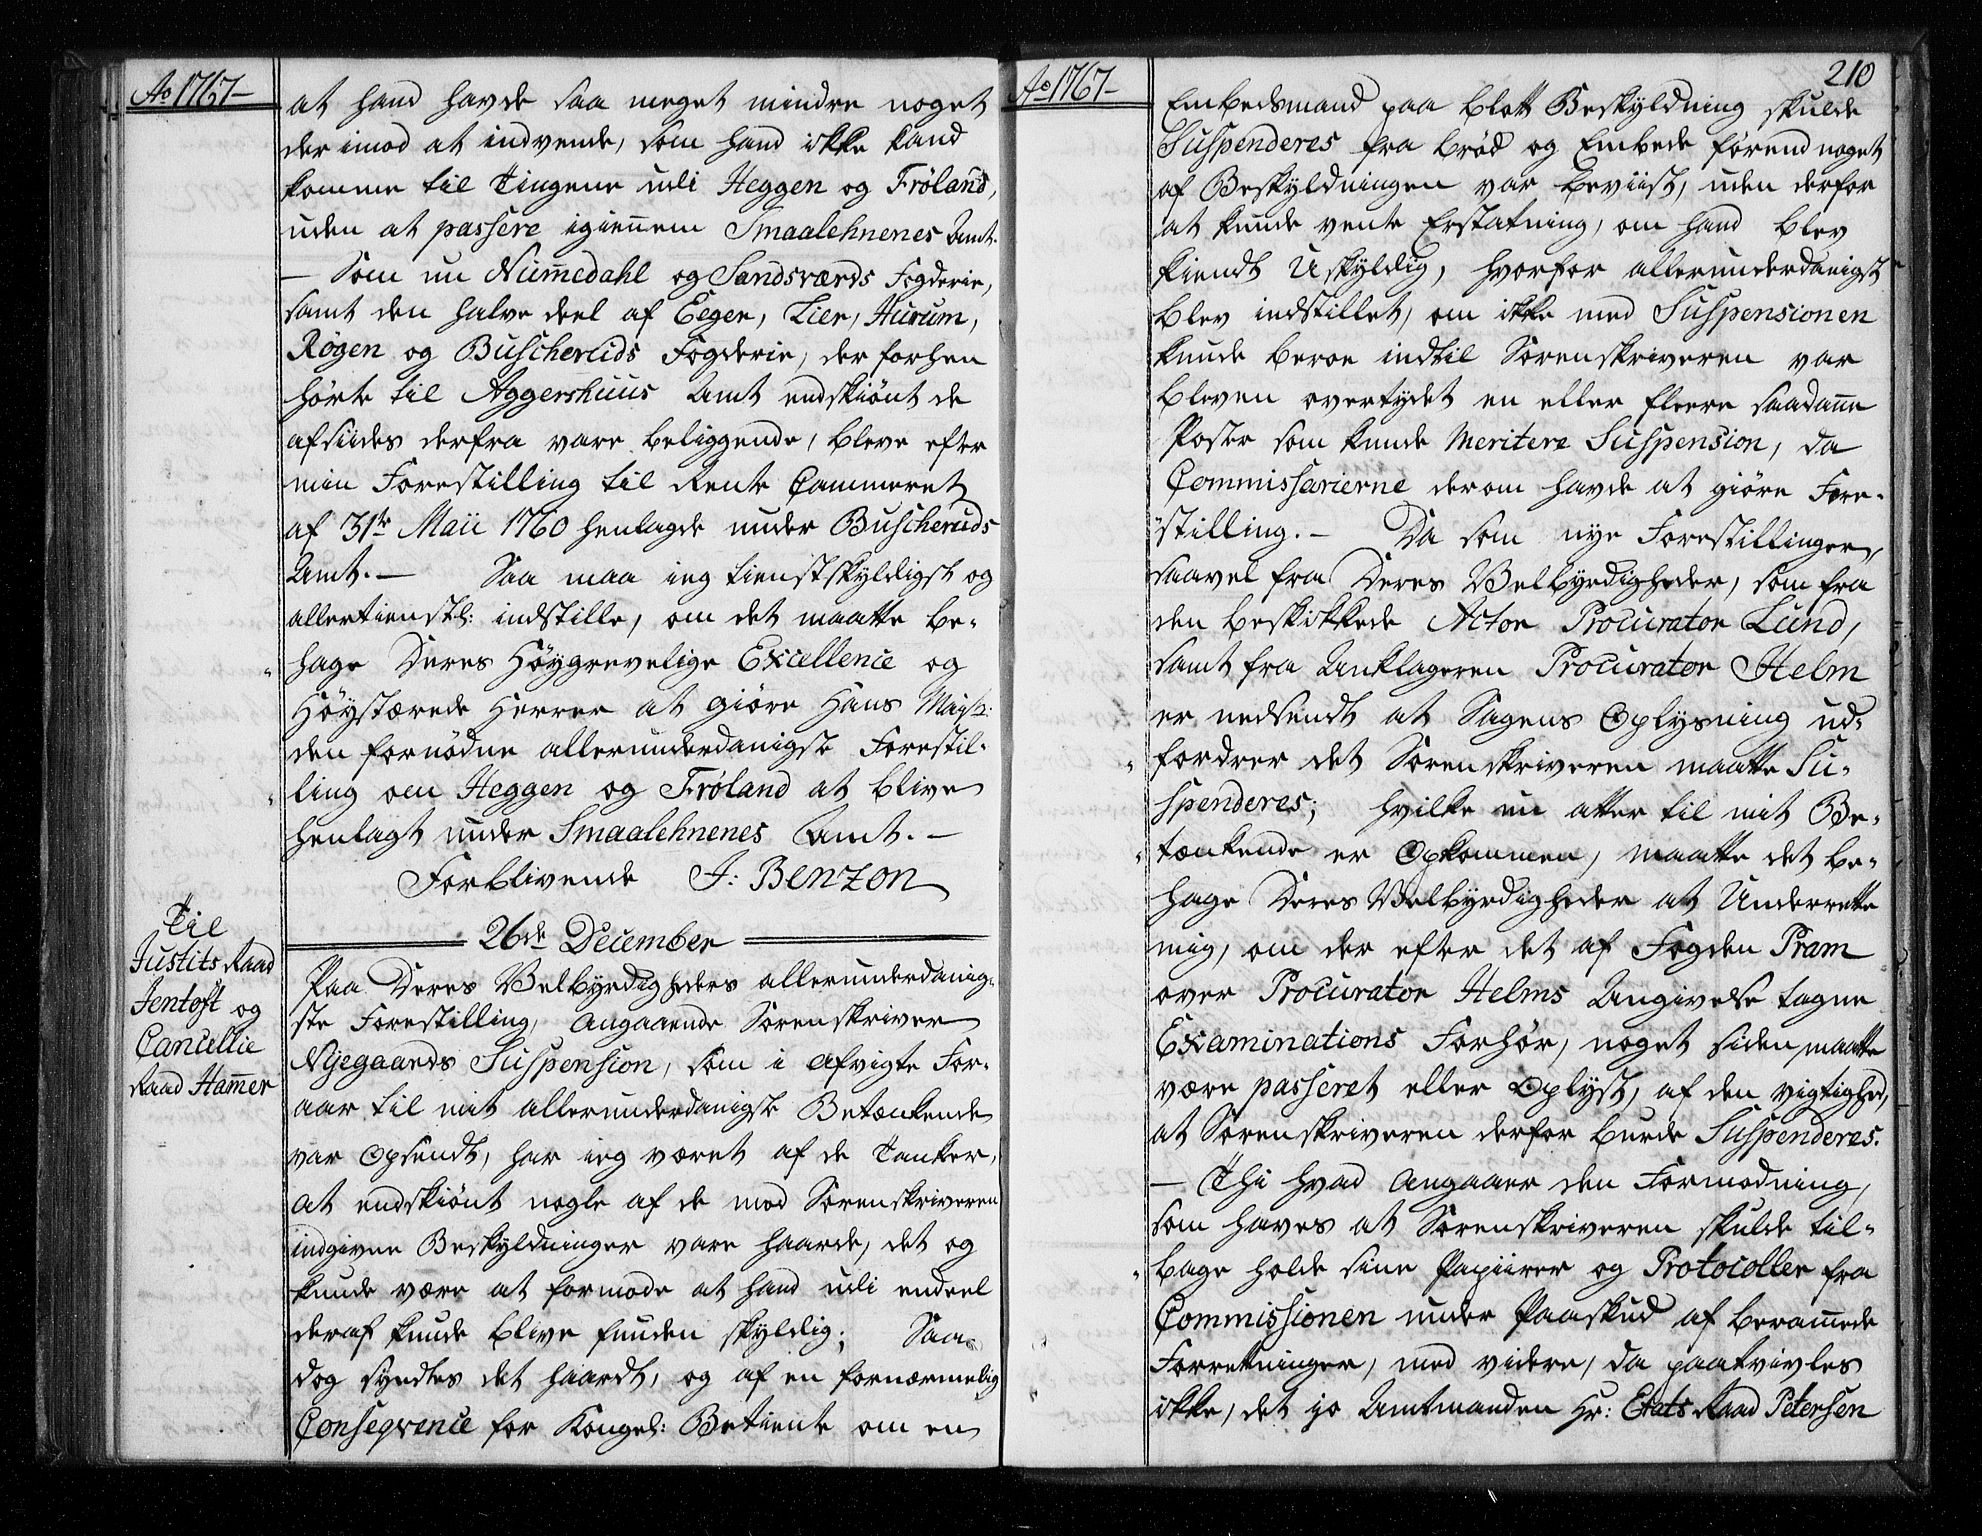 Ao 1767 -
at hand havde saa meget mindre noget
der imod at indvende, som hand ikke kand
komme til Tingene udi Heggen og Fröland,
uden at passere igiennem Smaalehnenes Amt.
- Som nu Nummedahl og Sandsværds Fogderie,
samt den halve deel af Eeger, Lier, Hurum,
Rögen og Buscheruds Fogderie, der forhen
hörte til Aggershuus Amt endskiönt de
afsiides derfra vare beliggende, bleve efter
min Forestilling til Rente Cammeret
af 31te Maii 1760 henlagde under Buscheruds
Amt. - Saa maa ieg tienstskyldigst og
allertienstl: indstille, om det maatte be-
hage Deres Höygrevelige Excellence og
Höystærede Herrer at giöre Hans Mayst:
den fornödne allerunderdanigste Forestil-
ling om Heggen og Fröland at blive
henlagt under Smaalehnenes Amt. -
Forblivende J: Benzon
26de December
Til
Justits Raad
Jentoft og
Cancellie
Raad Hammer
Paa Deres Velbyrdigheders allerunderdanig-
ste Forestilling, Angaaende Sorenskriver
Nyegaards Suspension, som i afvigte For-
aar til mit allerunderdanigste Betænkende
var Opsendt, har ieg været af de Tanker,
at endskiönt nogle af de mod Sorenskriveren
indgivne Beskyldninger vare haarde, det og
kunde være at formode at hand udi endeel
deraf kunde blive funden skyldig; Saa
dog syndtes det haardt, og af en fornærmelig
Conseqvence for Kongel: Betiente om en
Ao 1767 -
210
Embedsmand paa blott Beskyldning skulde
Suspenderes fra bröd og Embede förend noget
af Beskyldningen var beviist, uden derfor
at kunde vente Erstatning, om hand blev
kiendt Uskyldig, hvorfor allerunderdanigst
blev indstillet, om ikke med Suspensionen
kunde beroe indtil Sorenskriveren var
bleven overtydet en eller fleere saadanne
Poster som kunde Meritere Suspension, da
Commissarierne derom havde at giöre Fore-
stilling. - Da som nye Forestillinger,
saavel fra Deres Velbyrdigheder, som fra
den beskikkede Actor Procurator Lund,
samt fra Anklageren Procurator Helm
er nedsendt at Sagens Oplysning ud-
fordrer det Sorenskriveren maatte Su-
spenderes; hvilke nu atter til mit Be-
tænkende er Opkommen, maatte det be-
hage Deres Velbyrdigheder at Underrette
mig, om der efter det af Fogden Pram
over Procurator Helms Angivelse tagne
Examinations Forhör, noget siden maatte
være passeret eller Oplyst, af den vigtighed,
at Sorenskriveren derfor burde Suspenderes.
- Thi hvad Angaaer den Formodning,
som haves at Sorenskriveren skulde til-
bage holde sine Papiirer og Protocoller fra
Commissionen under Paaskud af beramede
Forretninger, med videre, da paatvivles
ikke, det jo Amtmanden Hr: Etats Raad Petersen